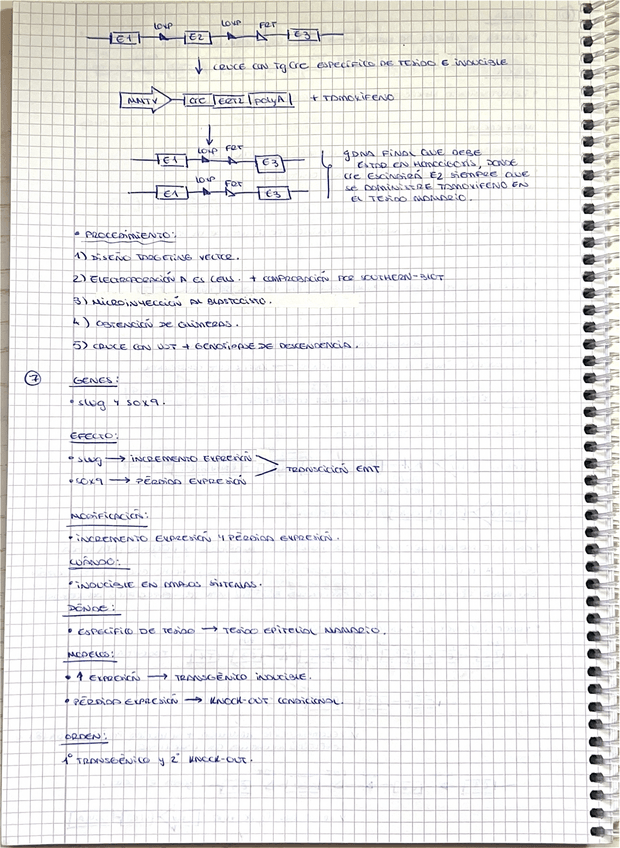 LOXP LOXP FRT
E1 E2 E3
↓ CRUCE CON TgCre ESPECÍFICO DE TEJIDO E INDUCIBLE
MMTV Cre ERT2 polyA + TAMOXIFENO
LOXP FRT
E1 E3
LOXP FRT
E1 E3
gDNA FINAL QUE DEBE
ESTAR EN HOMOCIGOSIS, DONDE
Cre ESCINDIRÁ E2 SIEMPRE QUE
SE ADMINISTRE TAMOXIFENO EN
EL TEJIDO MAMARIO.
• PROCEDIMIENTO:
1) DISEÑO TARGETING VECTOR.
2) ELECTROPORACIÓN A ES CELLS. + COMPROBACIÓN POR SOUTHERN-BLOT
3) MICROINYECCIÓN AL BLASTOCISTO.
4) OBTENCIÓN DE QUIMERAS.
5) CRUCE CON WT + GENOTIPADE DE DESCENDENCIA.
7 GENES:
• Slug Y SOX9.
EFECTO:
• Slug → INCREMENTO EXPRESIÓN
• SOX9 → PÉRDIDA EXPRESIÓN
TRANSICIÓN EMT
MODIFICACIÓN:
• INCREMENTO EXPRESIÓN Y PÉRDIDA EXPRESIÓN.
CUÁNDO:
• INDUCIBLE EN AMBOS SISTEMAS.
DÓNDE:
• ESPECÍFICO DE TEJIDO → TEJIDO EPITELIAL MAMARIO.
MODELO:
• ↑ EXPRESIÓN → TRANSGÉNICO INDUCIBLE.
• PÉRDIDA EXPRESIÓN → KNOCK-OUT CONDICIONAL.
ORDEN:
1º TRANSGÉNICO Y 2º KNOCK-OUT.